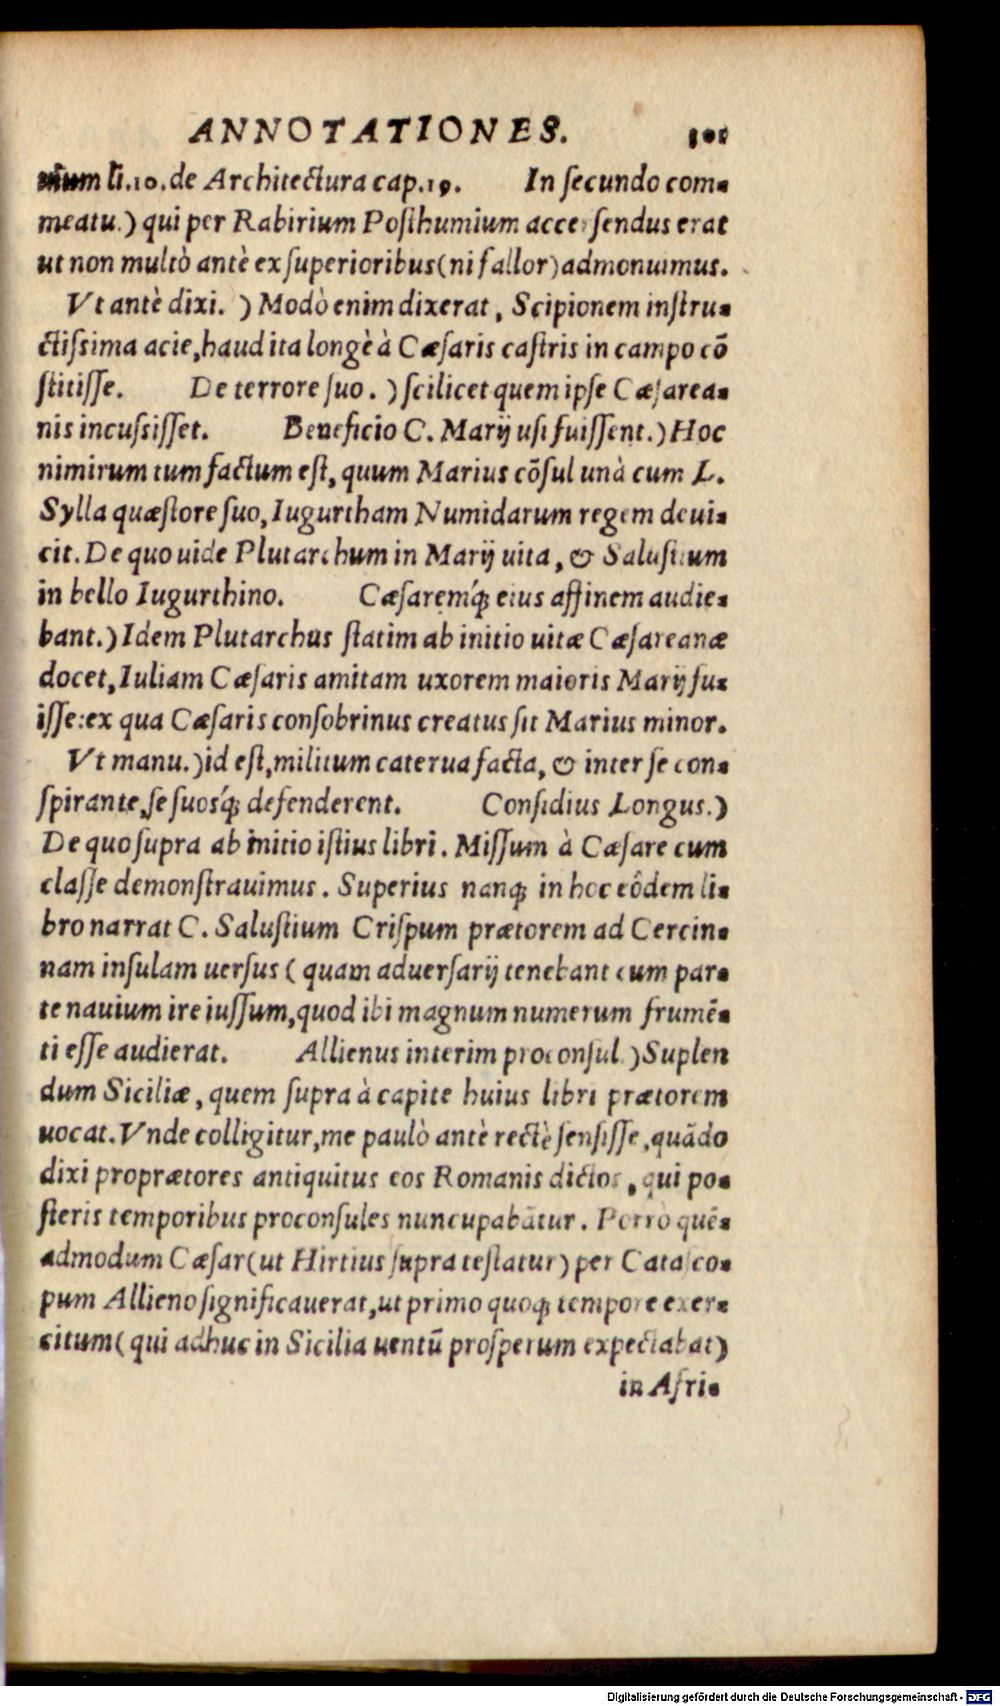 ANNOTATIONES. 101
li.10.de Architectura cap.19. In secundo com-
meatu.) qui per Rabirium Posthumium accersendus erat
ut non multò antè ex superioribus(ni fallor)admonuimus.
Vt antè dixi. ) Modò enim dixerat, Scipionem instru-
ctissima acie,haud ita longè à Cæsaris castris in campo cō
stitisse. De terrore suo. ) scilicet quem ipse Cæsarea-
nis incussisset. Beneficio C. Marij usi fuissent.) Hoc
nimirum tum factum est, quum Marius cōsul unà cum L.
Sylla quæstore suo, Iugurtham Numidarum regem deui-
cit. De quo uide Plutarchum in Marij uita, & Salustium
in bello Iugurthino. Cæsaremq́; eius affinem audie-
bant.) Idem Plutarchus statim ab initio uitæ Cæsareanæ
docet, Iuliam Cæsaris amitam uxorem maioris Marij fu-
isse:ex qua Cæsaris consobrinus creatus sit Marius minor.
Vt manu.)id est,militum caterua facta, & inter se con-
spirante,se suosq́; defenderent. Considius Longus.)
De quo supra ab initio istius libri. Missum à Cæsare cum
classe demonstrauimus. Superius nanq; in hoc eôdem li-
bro narrat C. Salustium Crispum prætorem ad Cercin-
nam insulam uersus ( quam aduersarij tenebant cum par-
te nauium ire iussum,quod ibi magnum numerum frumē-
ti esse audierat. Allienus interim proconsul.)Suplen
dum Siciliæ, quem supra à capite huius libri prætorem
uocat. Vnde colligitur,me paulò antè rectè sensisse,quādo
dixi proprætores antiquitus eos Romanis dictos, qui po-
steris temporibus proconsules nuncupabātur. Porrò quē-
admodum Cæsar(ut Hirtius supra testatur) per Catasco-
pum Allieno significauerat,ut primo quoq; tempore exer-
citum( qui adhuc in Sicilia uentū prosperum expectabat)
in Afri-
Digitalisierung gefördert durch die Deutsche Forschungsgemeinschaft - DFG